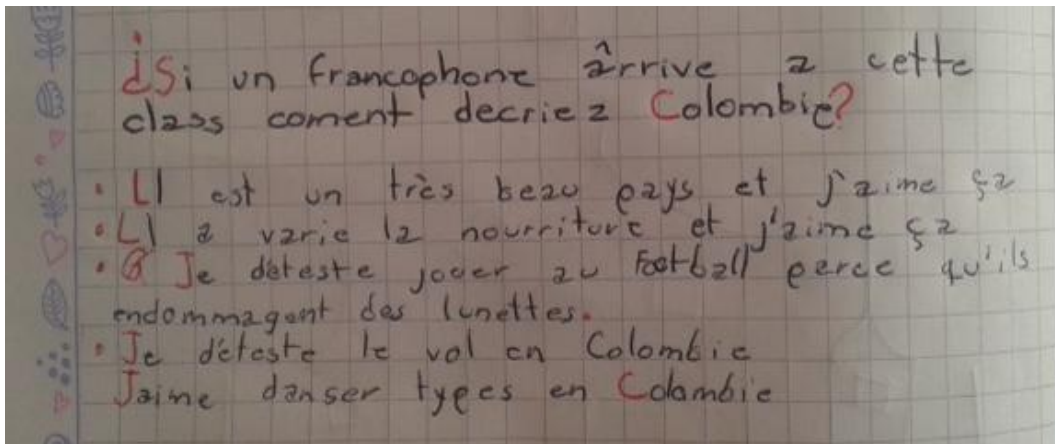 ¿Si un francophone ârrive a cette
class coment decriez Colombie?
• Ll est un très beau pays et j'aime ça
• Ll a varie la nourriture et j'aime ça
• Je déteste joder au Football perce qu'ils
endommagent des lunettes.
• Je déteste le vol en Colombie
Jaime danser types en Colombie